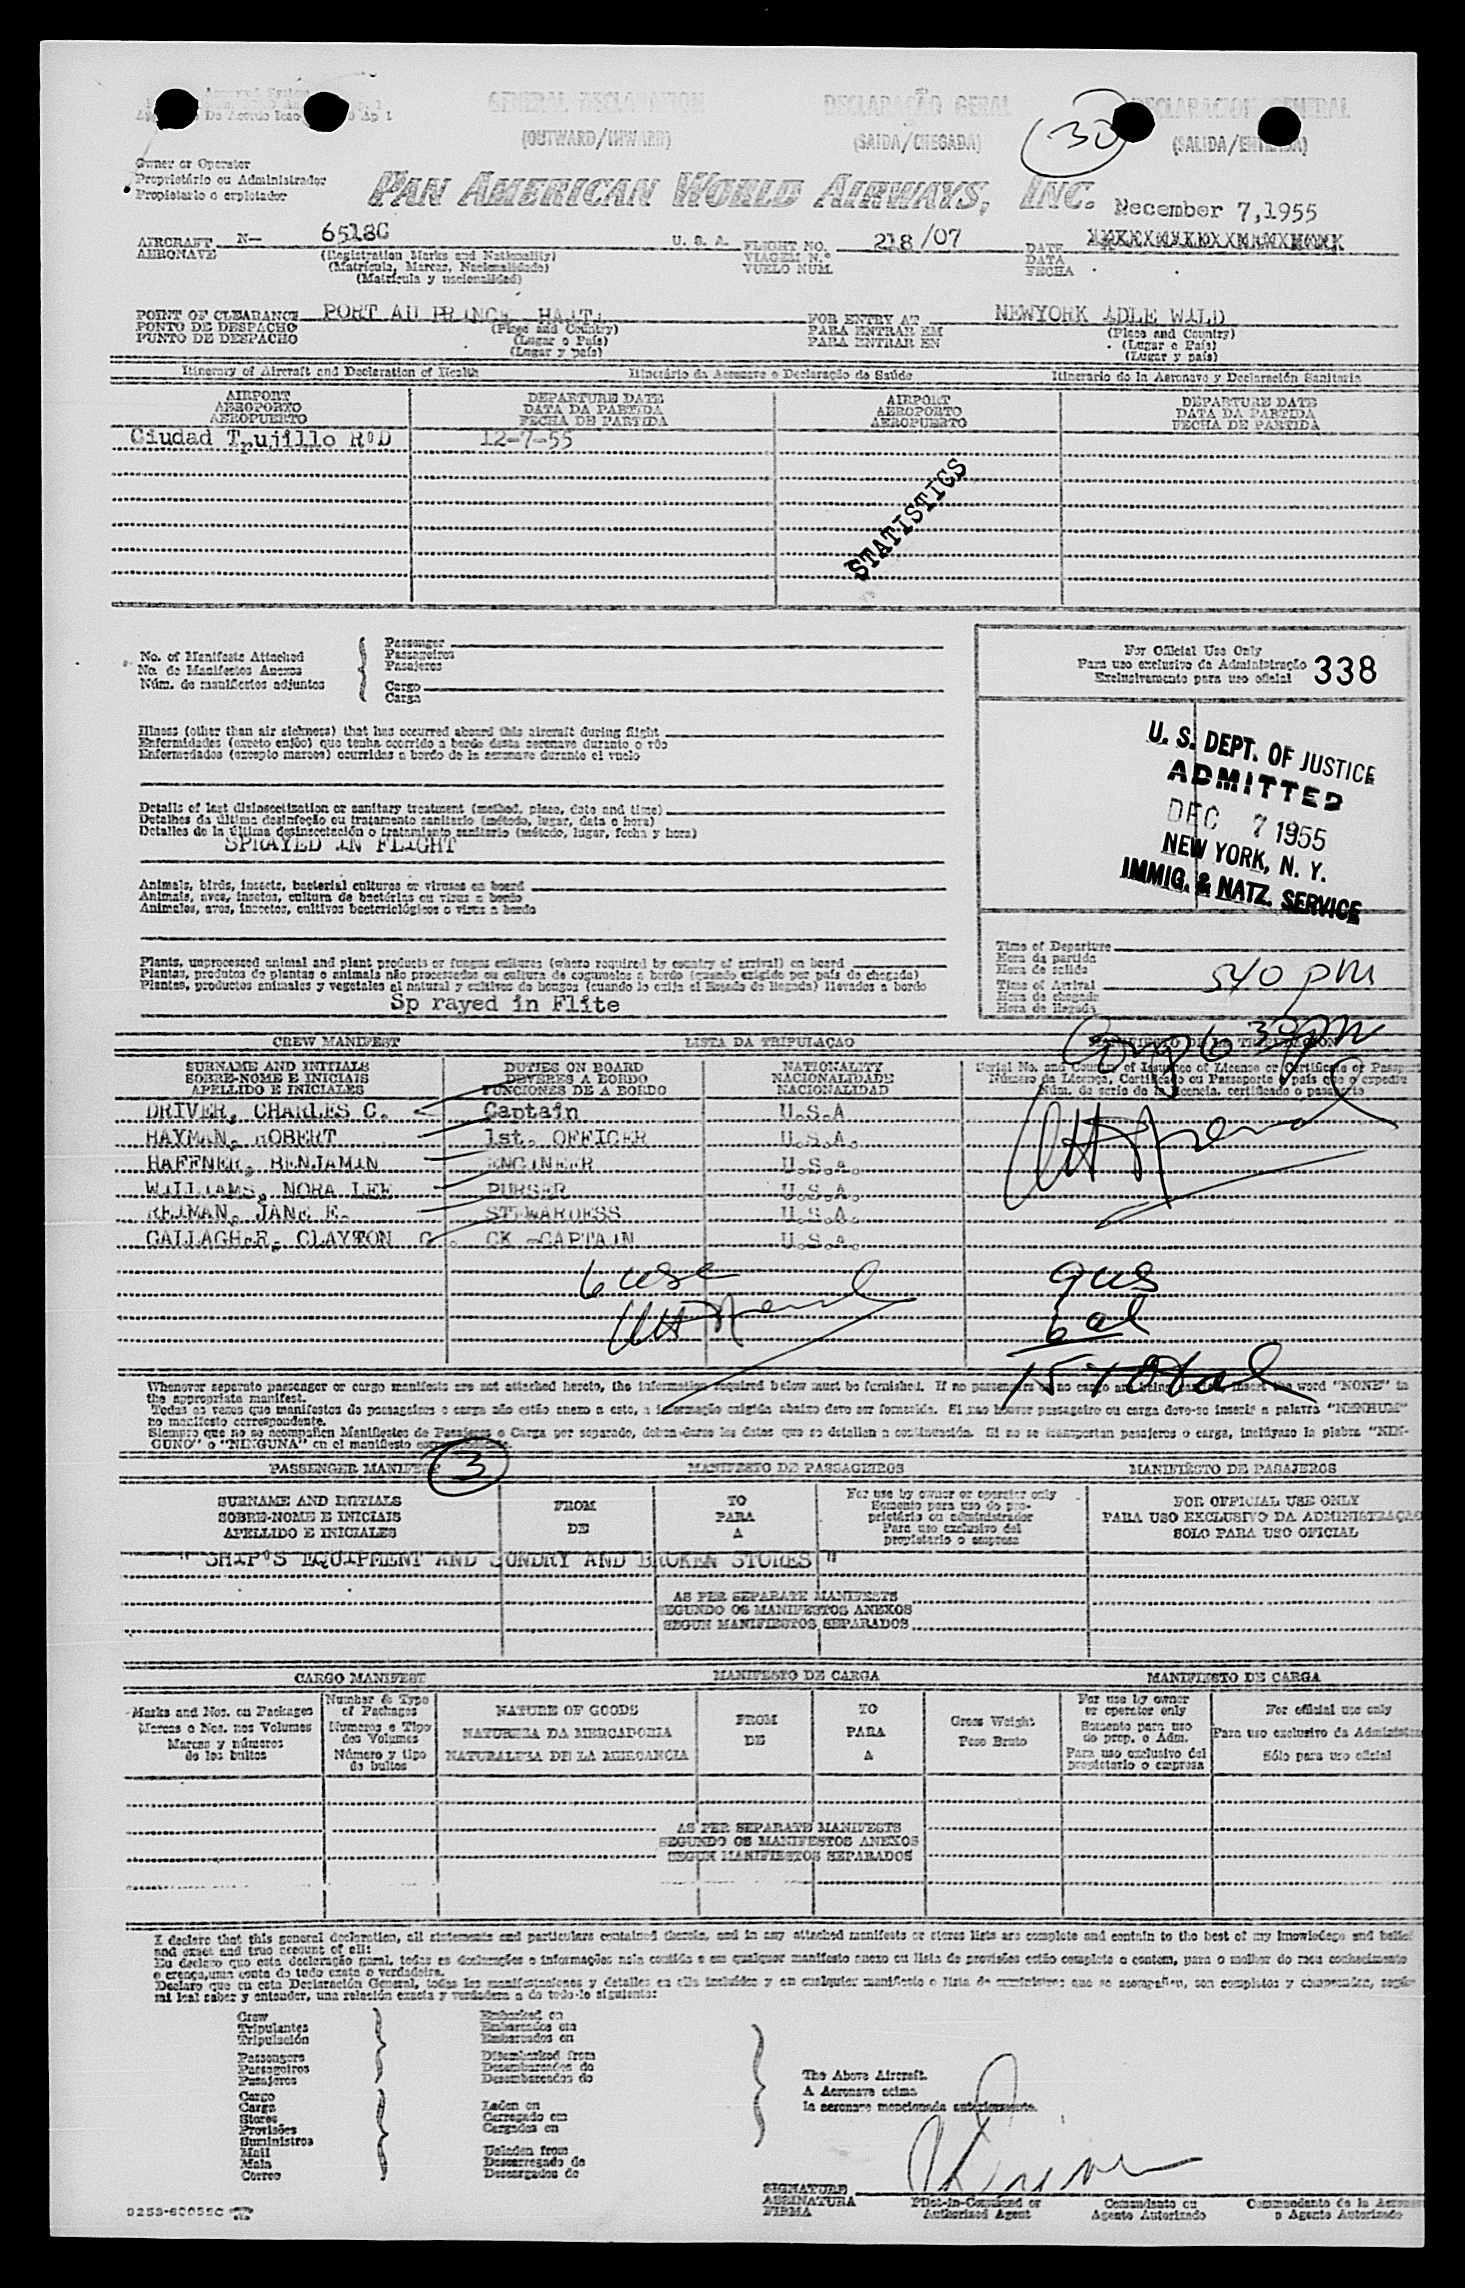 GENERAL DECLARATION
DECLARAÇÃO GERAL
DECLARACION GENERAL
(OUTWARD/INWARD)
(SAIDA/CHEGADA)
(SALIDA/ENTRADA)
30
Owner or Operator
Proprietário ou Administrador
Propietario o explotador
PAN AMERICAN WORLD AIRWAYS, INC.
December 7,1955
AIRCRAFT N- 6518C U. S. A. FLIGHT NO. 218/07 DATE
AERONAVE
(Registration Marks and Nationality)
VIAGEM N.º
DATA
(Matricula, Marcas, Nacionalidade)
VUELO NUM.
FECHA
(Matricula y nacionalidad)
POINT OF CLEARANCE PORT AU PRINCE HAITI FOR ENTRY AT NEWYORK IDLE WILD
PONTO DE DESPACHO (Place and Country) PARA ENTRAR EM (Place and Country)
PUNTO DE DESPACHO (Lugar o País) PARA ENTRAR EN (Lugar e País)
(Lugar y país) (Lugar y país)
Itinerary of Aircraft and Declaration of Health
Itinerário da Aeronave e Declaração de Saúde
Itinerario de la Aeronave y Declaración Sanitaria
AIRPORT DEPARTURE DATE AIRPORT DEPARTURE DATE
AEROPORTO DATA DA PARTIDA AEROPORTO DATA DA PARTIDA
AEROPUERTO FECHA DE PARTIDA AEROPUERTO FECHA DE PARTIDA
Ciudad Trujillo R.D 12-7-55
STATISTICS
No. of Manifests Attached
No. de Manifestos Anexos
Núm. de manifiestos adjuntos
Passenger
Passageiros
Pasajeros
Cargo
Carga
For Official Use Only
Para uso exclusivo da Administração
Exclusivamente para uso oficial
338
Illness (other than air sickness) that has occurred aboard this aircraft during flight
Enfermidades (exceto enjôo) que tenha ocorrido a bordo desta aeronave durante o vôo
Enfermedades (excepto mareos) ocurridas a bordo de la aeronave durante el vuelo
U. S. DEPT. OF JUSTICE
ADMITTED
DEC 7 1955
NEW YORK, N. Y.
IMMIG. & NATZ. SERVICE
Details of last disinsectization or sanitary treatment (method, place, date and time)
Detalhes da última desinfeção ou tratamento sanitario (método, lugar, data e hora)
Detalles de la última desinsectación o tratamiento sanitario (método, lugar, fecha y hora)
SPRAYED IN FLIGHT
Animals, birds, insects, bacterial cultures or viruses on board
Animais, aves, insetos, cultura de bactérias ou virus a bordo
Animales, aves, insectos, cultivos bacteriológicos o virus a bordo
Plants, unprocessed animal and plant products or fungus cultures (where required by country of arrival) on board
Plantas, produtos de plantas e animais não processados ou cultura de cogumelos a bordo (quando exigido por pais de chegada)
Plantas, productos animales y vegetales al natural y cultivos de hongos (cuando lo exija el Estado de llegada) llevados a bordo
Sp rayed in Flite
Time of Departure
Hora da partida
Hora de salida
Time of Arrival
Hora de chegada
Hora de llegada
540 pm
CREW MANIFEST
LISTA DA TRIPULAÇAO
MANIFIESTO DE LA TRIPULACION
SURNAME AND INITIALS DUTIES ON BOARD NATIONALITY
SOBRE-NOME E INICIAIS DEVERES A BORDO NACIONALIDADE
APELLIDO E INICIALES FUNCIONES DE A BORDO NACIONALIDAD
Serial No. and Country of Issuance of License or Certificate or Passport
Número da Licença, Certificado ou Passaporte e país que o expediu
Núm. de serie de la licencia, certificado o pasaporte
DRIVER, CHARLES C. Captain U.S.A
HAYMAN, ROBERT 1st. OFFICER U.S.A.
HAFFNER, BENJAMIN ENGINEER U.S.A.
WILLIAMS, NORA LEE PURSER U.S.A.
REIMAN, JANE E. STEWARDESS U.S.A.
GALLAGHER, CLAYTON G. CK -CAPTAIN U.S.A.
6 usc
9 us
6 al
15 total
Whenever separate passenger or cargo manifests are not attached hereto, the information required below must be furnished. If no passengers or no cargo are being carried, insert the word "NONE" in
the appropriate manifest.
Todas as vezes que manifestos de passageiros e carga não estão anexo a este, a informação exigida abaixo deve ser fornecida. Si nao houver passageiro ou carga deve-se inserir a palavra "NENHUM"
no manifesto correspondente.
Siempre que no se acompañen Manifiestos de Pasajeros o Carga por separado, deben darse los datos que se detallan a continuación. Si no se transportan pasajeros o carga, inclúyase la plabra "NIN-
GUNO" o "NINGUNA" en el manifiesto correspondiente.
PASSENGER MANIFEST
3
MANIFESTO DE PASSAGEIROS
MANIFIESTO DE PASAJEROS
SURNAME AND INITIALS
SOBRE-NOME E INICIAIS
APELLIDO E INICIALES
FROM
DE
TO
PARA
A
For use by owner or operator only
Somente para uso do pro-
prietário ou administrador
Para uso exclusivo del
propietario o empresa
FOR OFFICIAL USE ONLY
PARA USO EXCLUSIVO DA ADMINISTRAÇÃO
SOLO PARA USO OFICIAL
" SHIP'S EQUIPMENT AND SUNDRY AND BROKEN STORES "
AS PER SEPARATE MANIFESTS
SEGUNDO OS MANIFESTOS ANEXOS
SEGUN MANIFIESTOS SEPARADOS
CARGO MANIFEST
MANIFESTO DE CARGA
MANIFIESTO DE CARGA
Marks and Nos. on Packages
Marcas e Nos. nos Volumes
Marcas y números
de los bultos
Number & Type
of Packages
Numeros e Tipo
dos Volumes
Número y tipo
de bultos
NATURE OF GOODS
NATUREZA DA MERCADORIA
NATURALEZA DE LA MERCANCIA
FROM
DE
TO
PARA
A
Gross Weight
Peso Bruto
For use by owner
or operator only
Somente para uso
do prop. e Adm.
Para uso exclusivo del
propietario o empresa
For official use only
Para uso exclusivo da Administra
Sólo para uso oficial
AS PER SEPARATE MANIFESTS
SEGUNDO OS MANIFESTOS ANEXOS
SEGUN MANIFIESTOS SEPARADOS
I declare that this general declaration, all statements and particulars contained therein, and in any attached manifests or stores lists are complete and contain to the best of my knowledge and belief
and exact and true account of all:
Eu declaro que esta declaração garal, todas as declarações e informações nela contida e em qualquer manifesto anexo ou lista de provisões estão completo e contem, para o melhor do meu conhecimento
e crença,uma conta de tudo exata e verdadeira.
Declaro que en esta Declaración General, todas las manifestaciones y detalles en ella incluidos y en cualquier manifiesto o lista de suministros que se acompañen, son completos y comprenden, según
mi leal saber y entender, una relación exacta y verdadera a de todo-lo siguiente:
Crew
Tripulantes
Tripulación
Passengers
Passageiros
Pasajeros
Cargo
Carga
Stores
Provisões
Suministros
Mail
Mala
Correo
Embarked on
Embarcados em
Embarcados en
Disembarked from
Desembarcados do
Desembarcados de
Laden on
Carregado em
Cargados en
Unladen from
Descarregado de
Descargados de
The Above Aircraft.
A Aeronave acima
la aeronave mencionada anteriormente.
SIGNATURE
ASSINATURA
FIRMA
Pilot-in-Command or
Authorized Agent
Comandante ou
Agente Autorizado
Commandante de la Aerona
o Agente Autorizado